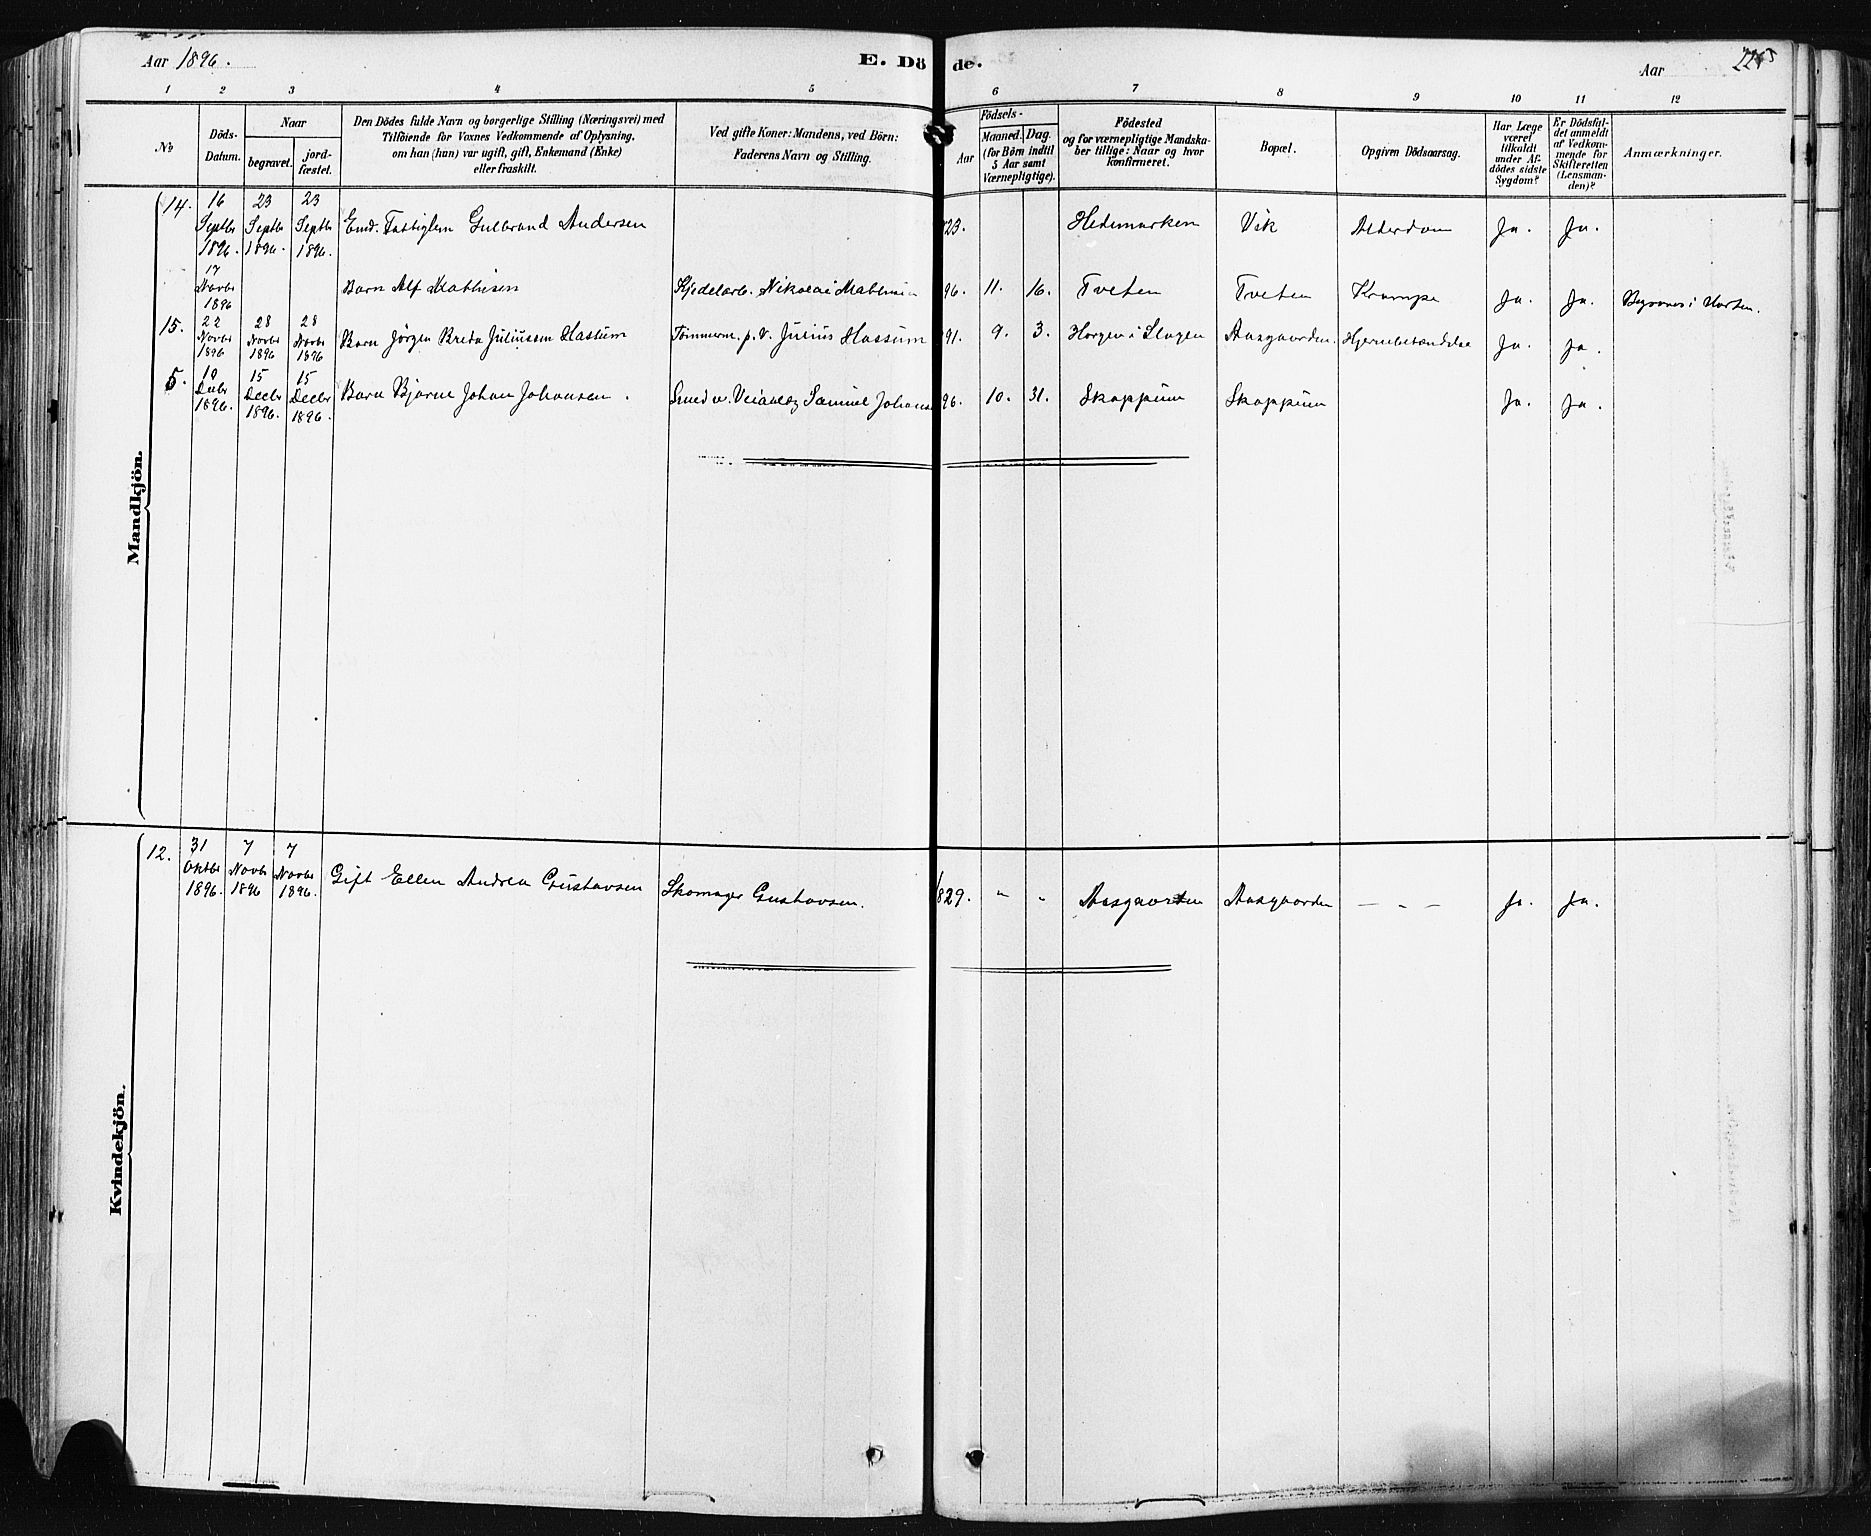 Aar 1896.
E. Döde.
Aar
225
1 2 3 4 5 6 7 8 9 10 11 12
No
Döds-Datum.
Naar
begravet.
jord-fæstet.
Den Dödes fulde Navn og borgerlige Stilling (Næringsvei) med
Tilföiende for Voxnes Vedkommende af Oplysning,
om han (hun) var ugift, gift, Enkemand (Enke)
eller fraskilt.
Ved gifte Koner: Mandens, ved Börn:
Faderens Navn og Stilling.
Födsels-
Aar
Maaned. Dag.
(for Börn indtil
5 Aar samt
Værnepligtige).
Födested
og for værnepligtige Mandska-
ber tillige: Naar og hvor
konfirmeret.
Bopæl.
Opgiven Dödsaarsag.
Har Læge
været
tilkaldt
under Af-
dödes sidste
Sygdom?
Er Dödsfal-
det anmeldt
af Vedkom-
mende for
Skifteretten
(Lensman-
den)?
Anmærkninger.
Mandkjön.
14. 16 Septbr 1896. 23 Septbr 1896. 23 Septbr 1896. Gulbrand Andersen 23. Hedemarken Vik Alderdom Ja. Ja.
17 Novbr 1896 Barn Alf Mathisen Kjedelarb. Nikolai Mathisen 96. 11. 16. Tveten Tveten Krampe Ja. Ja. i Horten.
15. 22 Novbr 1896 28 Novbr 1896 28 Novbr 1896 Barn Jörgen Breda Juliussen Hassum Tömmerm. p. V. Julius Hassum 91. 9. 3. Horgen i Slagen Aasgaarden. Hjernebetændelse Ja. Ja.
5. 10 Decbr 1896. 15 Decbr 1896. 15 Decbr 1896. Barn Bjarne Johan Johansen. Smed v. Samuel Johans 96. 10. 31. Skoppum Skoppum Ja. Ja.
Kvindekjön.
12. 31 Oktbr 1896. 7 Novbr 1896 7 Novbr 1896. Gift Ellen Andrea Gustavsen Skomager Gustavsen. 1829. " " Aasgaarden Aasgaarden — " — Ja. Ja.